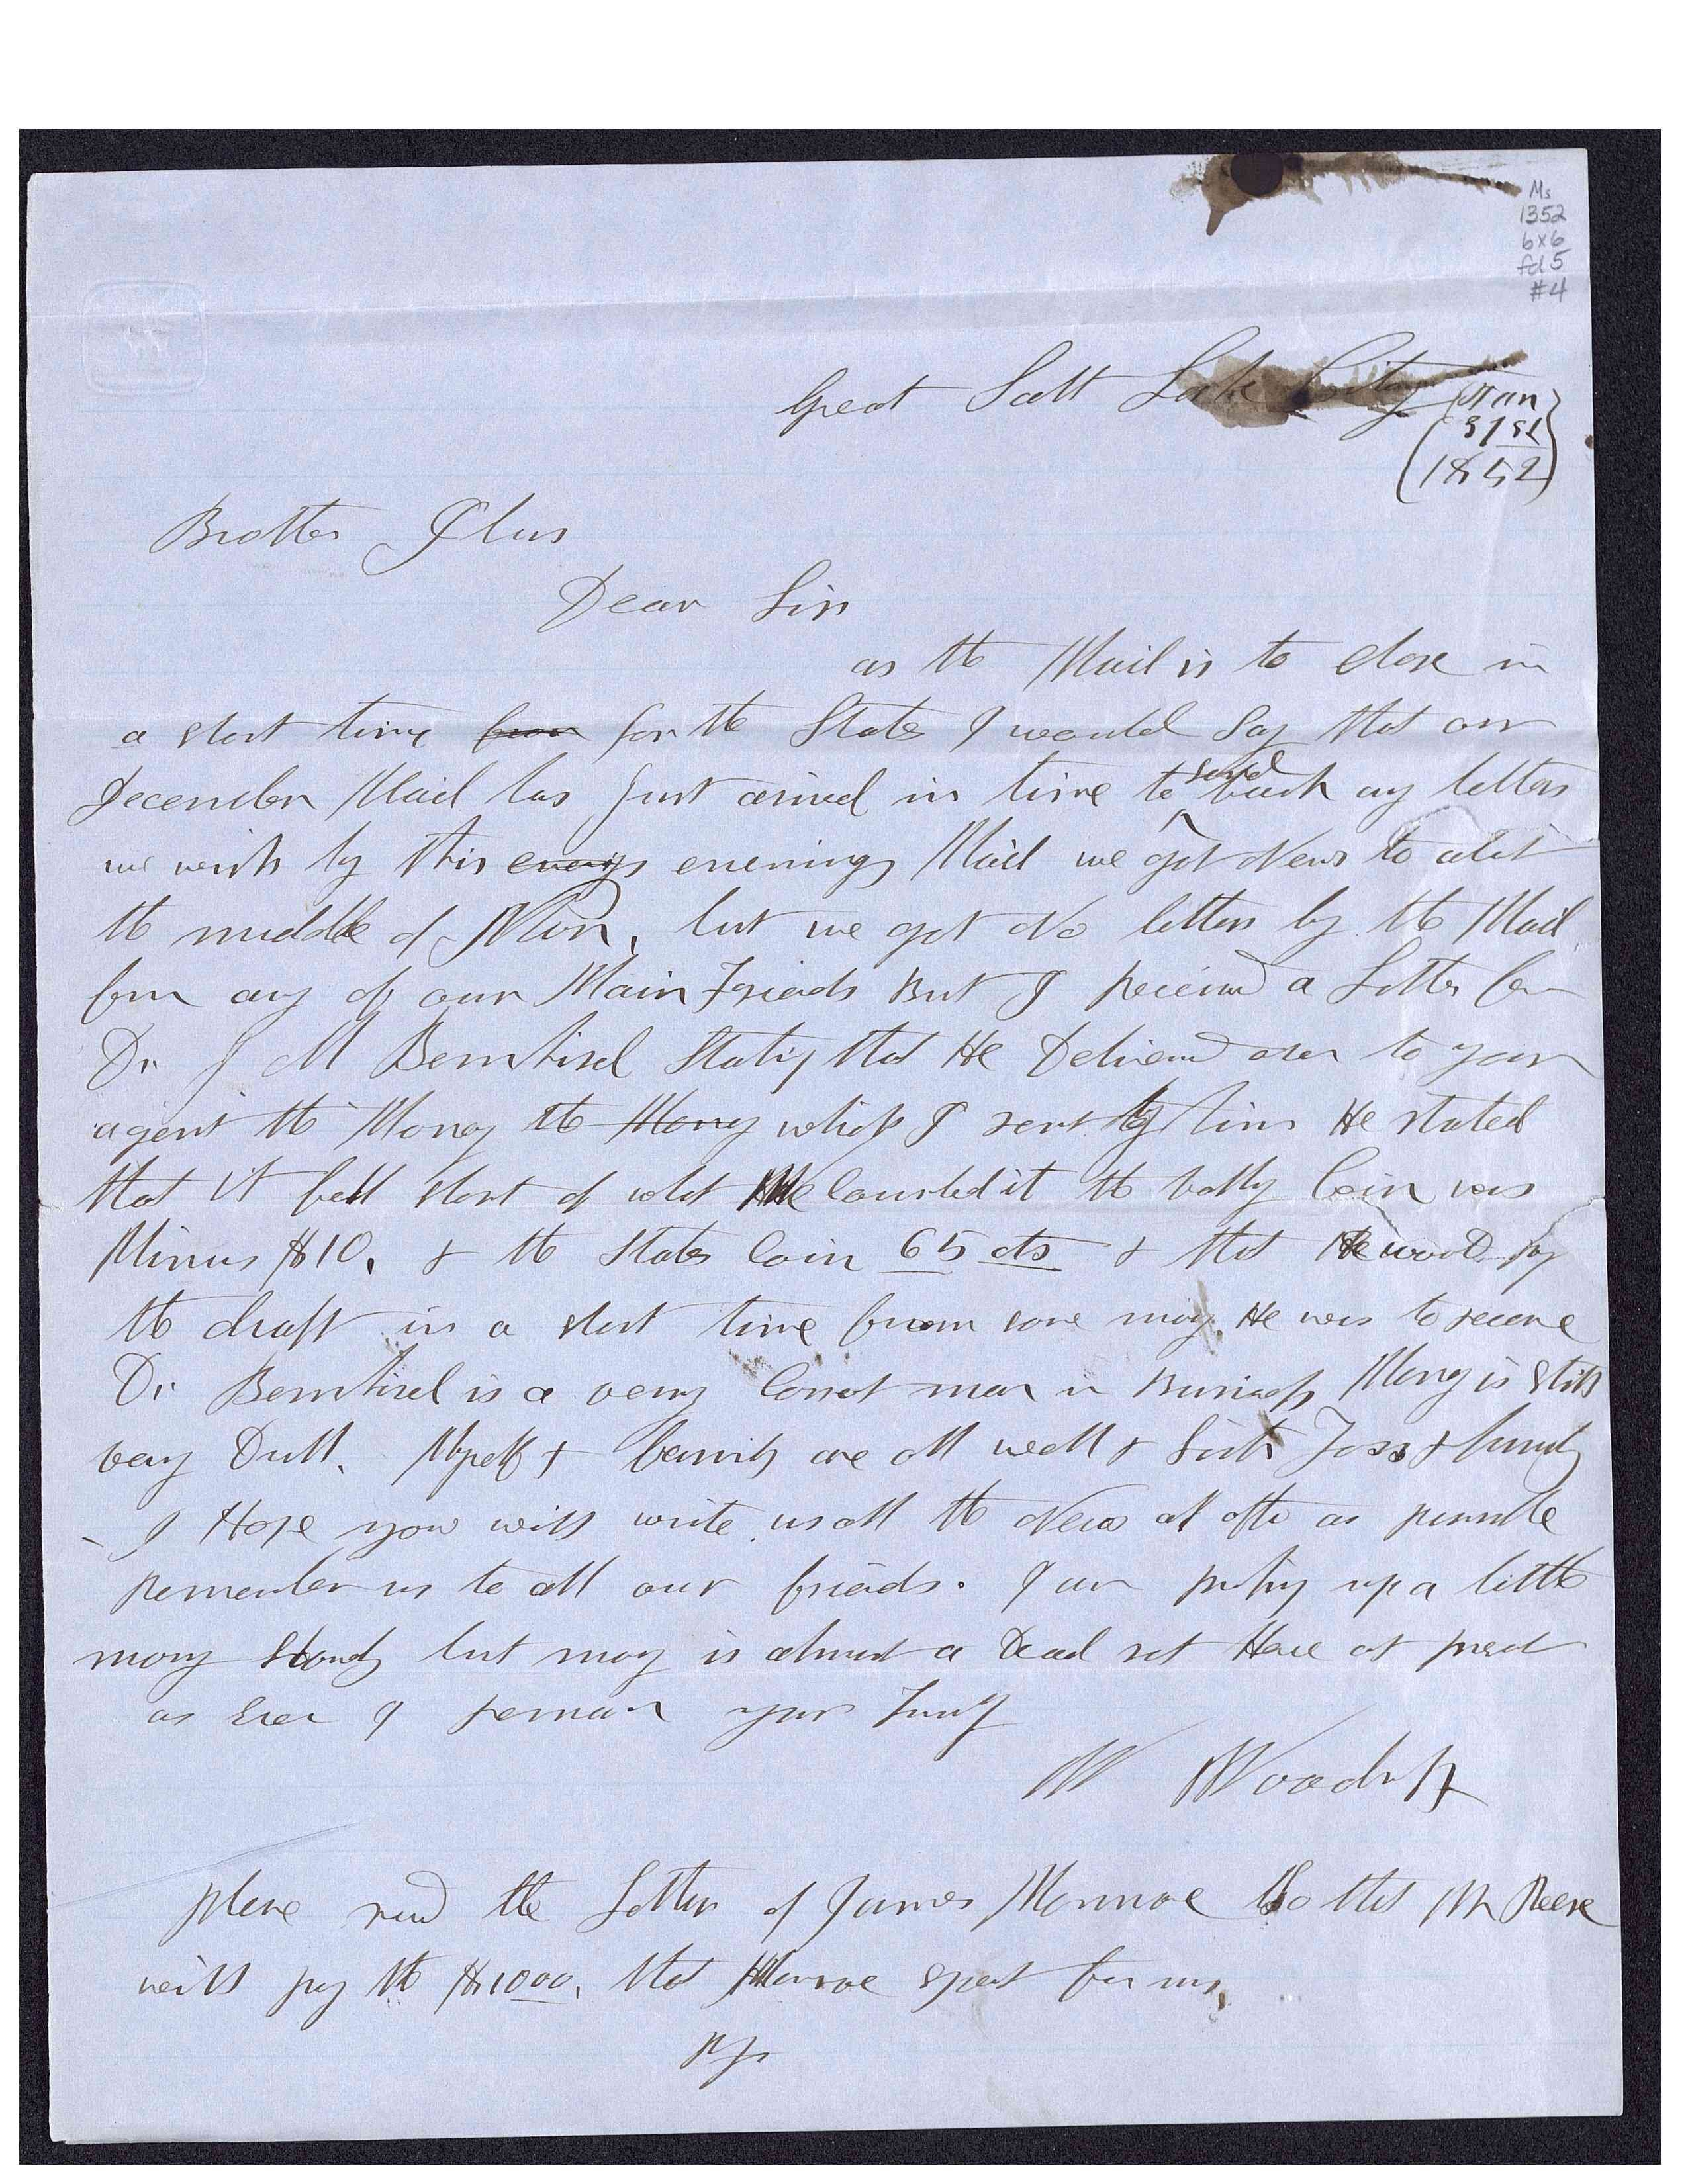 Ms
1352
bx6
fd 5
#4
Great Salt Lake City (Jan
31st
1852)
Brother Ilus
Dear Sir
as the Mail is to close in
a short time from for the States I would say that our
December Mail has just arived in time to send back any letters
we wish by this evenings evenings Mail we got News to about
the middle of Nov, but we got No letters by the Mail
from any of our Main Friends But I received a Letter from
Dr J M Bernhisel Stating that He Delivered over to your
agent the Money the Money which I sent by him He stated
that it fell short of what He counted it the vally Coin was
Minus $10. & the States Coin 65 cts & that He would pay
the draft in a short time from some money He was to receive
Dr Bernhisel is a very Correct man in Business Money is still
very Dull. Myself & family are all well & Sister Foss & family
I Hope you will write us all the News as often as possible
remember us to all our friends. I am puting up a little
money but money is almost a Dead set Here at present
as Ever I remain yours Truly
W Woodruff
please read the Letter of James Monroe so that Mr Reese
will pay the $1000. that Monroe spent for us,